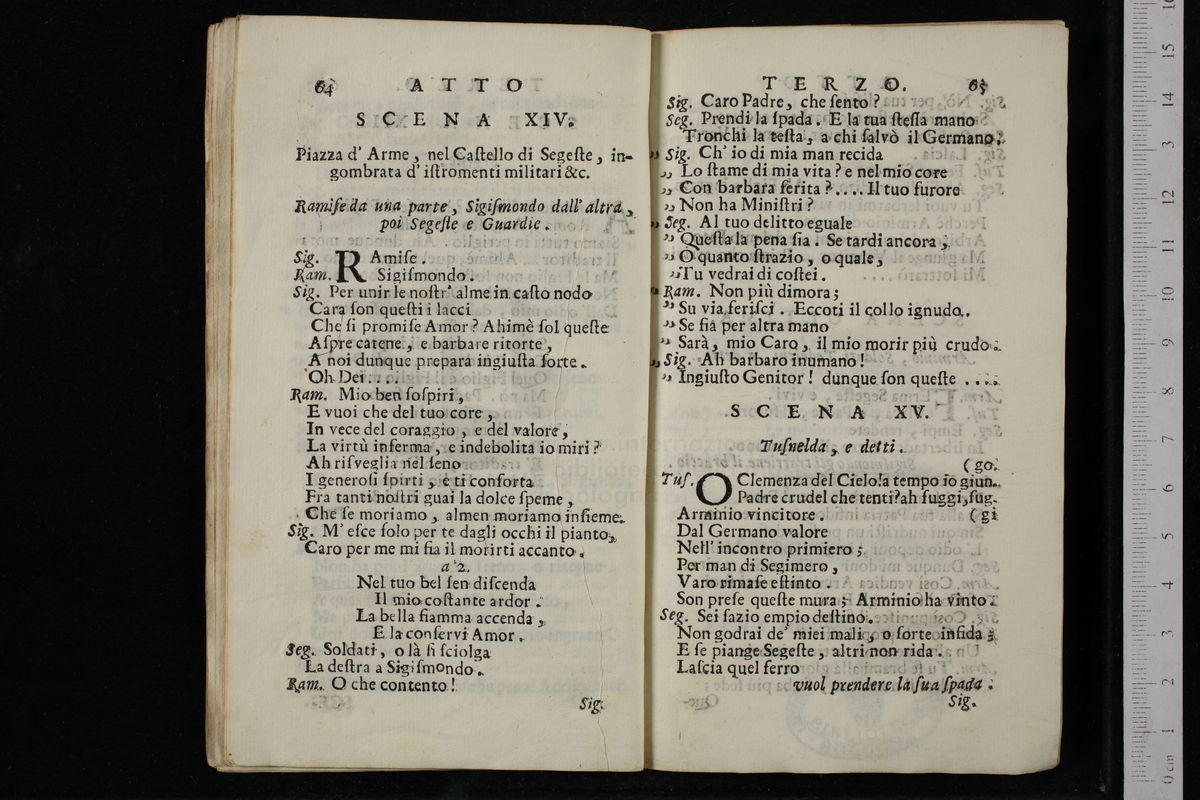 64 ATTO
SCENA XIV.
Piazza d' Arme, nel Caſtello di Segeſte, in-
gombrata d' iſtromenti militari &c.
Ramiſe da una parte, Sigiſmondo dall' altra,
poi Segeſte e Guardie.
Sig. RAmiſe.
Ram. Sigiſmondo.
Sig. Per unir le noſtr' alme in caſto nodo
Cara ſon queſti i lacci
Che ſi promiſe Amor? Ahimè ſol queſte
Aſpre catene, e barbare ritorte,
A noi dunque prepara ingiuſta ſorte.
Oh Dei....
Ram. Mio ben ſoſpiri,
E vuoi che del tuo core,
In vece del coraggio, e del valore,
La virtù inferma, e indebolita io miri?
Ah riſveglia nel ſeno
I generoſi ſpirti, e ti conforta
Fra tanti noſtri guai la dolce ſpeme,
Che ſe moriamo, almen moriamo inſieme.
Sig. M' eſce ſolo per te dagli occhi il pianto,
Caro per me mi ſia il morirti accanto.
a 2.
Nel tuo bel ſen diſcenda
Il mio coſtante ardor.
La bella fiamma accenda,
E la conſervi Amor.
Seg. Soldati, o là ſi ſciolga
La deſtra a Sigiſmondo.
Ram. O che contento!
Sig.
TERZO. 65
Sig. Caro Padre, che ſento?
Seg. Prendi la ſpada. E la tua ſteſſa mano
Tronchi la teſta, a chi ſalvò il Germano.
„ Sig. Ch' io di mia man recida
„ Lo ſtame di mia vita? e nel mio core
„ Con barbara ferita?.... Il tuo furore
„ Non ha Miniſtri?
„ Seg. Al tuo delitto eguale
„ Queſta la pena ſia. Se tardi ancora,
„ O quanto ſtrazio, o quale,
„ Tu vedrai di coſtei.
„ Ram. Non più dimora;
„ Su via feriſci. Eccoti il collo ignudo.
„ Se fia per altra mano
„ Sarà, mio Caro, il mio morir più crudo.
„ Sig. Ah barbaro inumano!
„ Ingiuſto Genitor! dunque ſon queſte ....
SCENA XV.
Tuſnelda, e detti.
(go.
Tuſ. O Clemenza del Cielo!a tempo io giun-
Padre crudel che tenti?ah fuggi,fug-
Arminio vincitore. (gi
Dal Germano valore
Nell' incontro primiero;
Per man di Segimero,
Varo rimaſe eſtinto.
Son preſe queſte mura; Arminio ha vinto.
Seg. Sei ſazio empio deſtino.
Non godrai de' miei mali, o ſorte infida;
E ſe piange Segeſte, altri non rida.
Laſcia quel ferro
vuol prendere la ſua ſpada.
Sig.